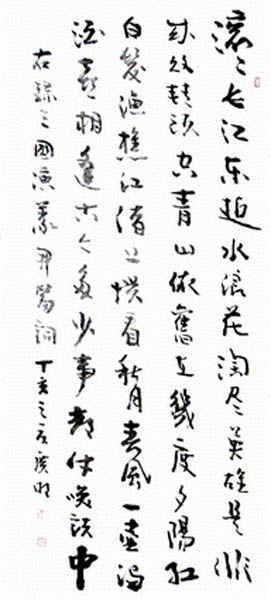 滚〻长江东逝水浪花淘尽英雄是非
成败转头空青山依舊在幾度夕陽红
白髮漁樵江渚上惯看秋月春風一壶濁
酒喜相逢古今多少事都付笑談中
右録三國演義開篇詞丁亥之夏廣明